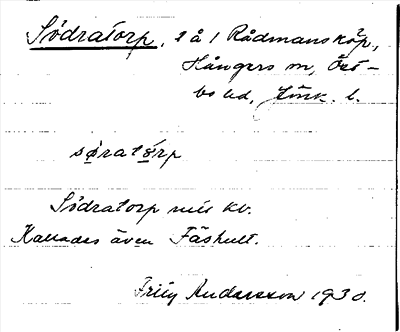 Södratorp, t å l Rådmansköp,
Hångers sn, Öst-
bo hd, Jönk. l.
søratǿrp
Södratorp mus kv.
Kallades även Fäshult.
Fritz Andersson 1930.